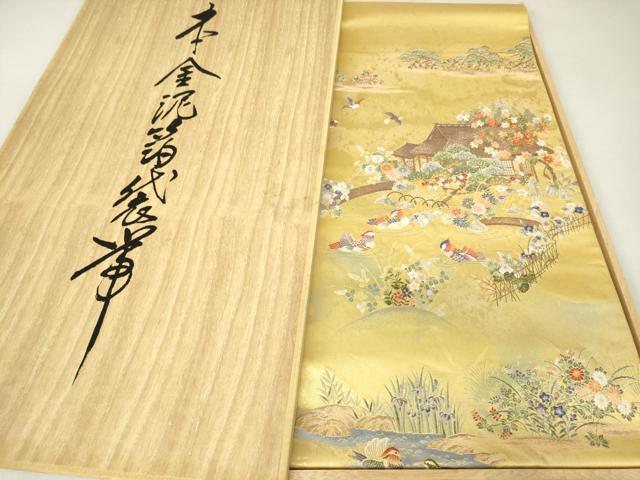 本金泥箔代袋帯